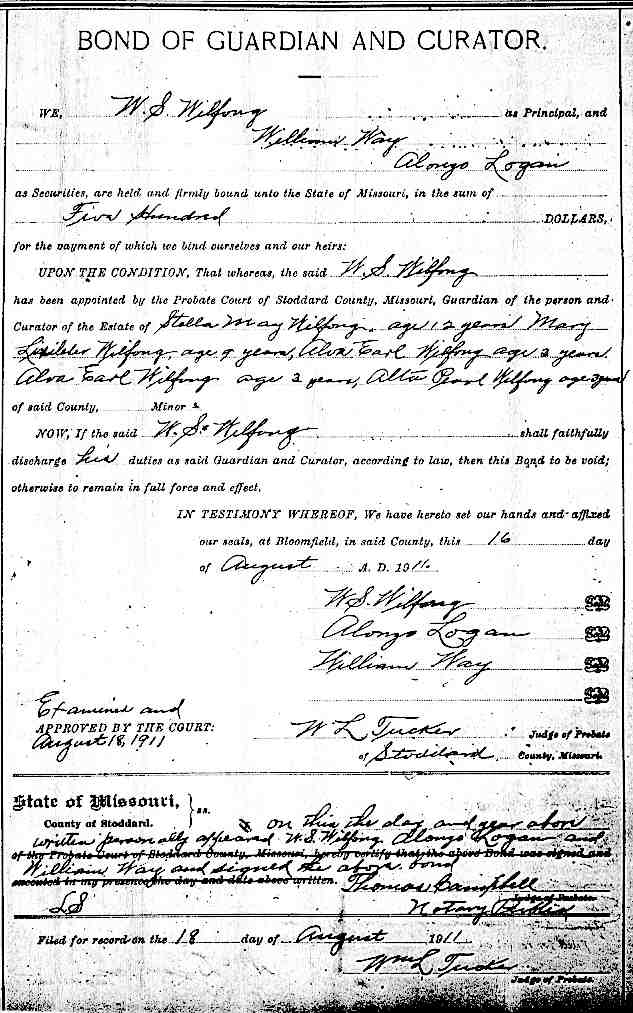 BOND OF GUARDIAN AND CURATOR.
WE, W. S. Wilfong as Principal, and
William Way
Alonzo Logan
as Securities, are held and firmly bound unto the State of Missouri, in the sum of
Five Hundred DOLLARS,
for the payment of which we bind ourselves and our heirs:
UPON THE CONDITION, That whereas, the said W. S. Wilfong
has been appointed by the Probate Court of Stoddard County, Missouri, Guardian of the person and
Curator of the Estate of Stella May Wilfong, age 12 years Mary
Wilfong, age 9 years, Alva Earl Wilfong age 3 years
Alva Earl Wilfong age 3 years, Alta Pearl Wilfong age 3 years
of said County, Minor s
NOW, If the said W. S. Wilfong shall faithfully
discharge his duties as said Guardian and Curator, according to law, then this Bond to be void;
otherwise to remain in full force and effect.
IN TESTIMONY WHEREOF, We have hereto set our hands and affixed
our seals, at Bloomfield, in said County, this 16 day
of August A. D. 1911.
W. S. Wilfong Seal
Alonzo Logan Seal
William Way Seal
Seal
Examined and
APPROVED BY THE COURT:
August 18, 1911
W L Tucker Judge of Probate
of Stoddard County, Missouri.
State of Missouri,
County of Stoddard. } ss.
on this the day and year above
written personally appeared W. S. Wilfong Alonzo Logan and
of the Probate Court of Stoddard County, Missouri, hereby certify that the above Bond was signed and
William Way and signed the above bond
executed in my presence the day and date above written.
Thomas Campbell
Judge of Probate.
LS Notary Public
Filed for record on the 18 day of August 1911
Wm L Tucker
Judge of Probate.